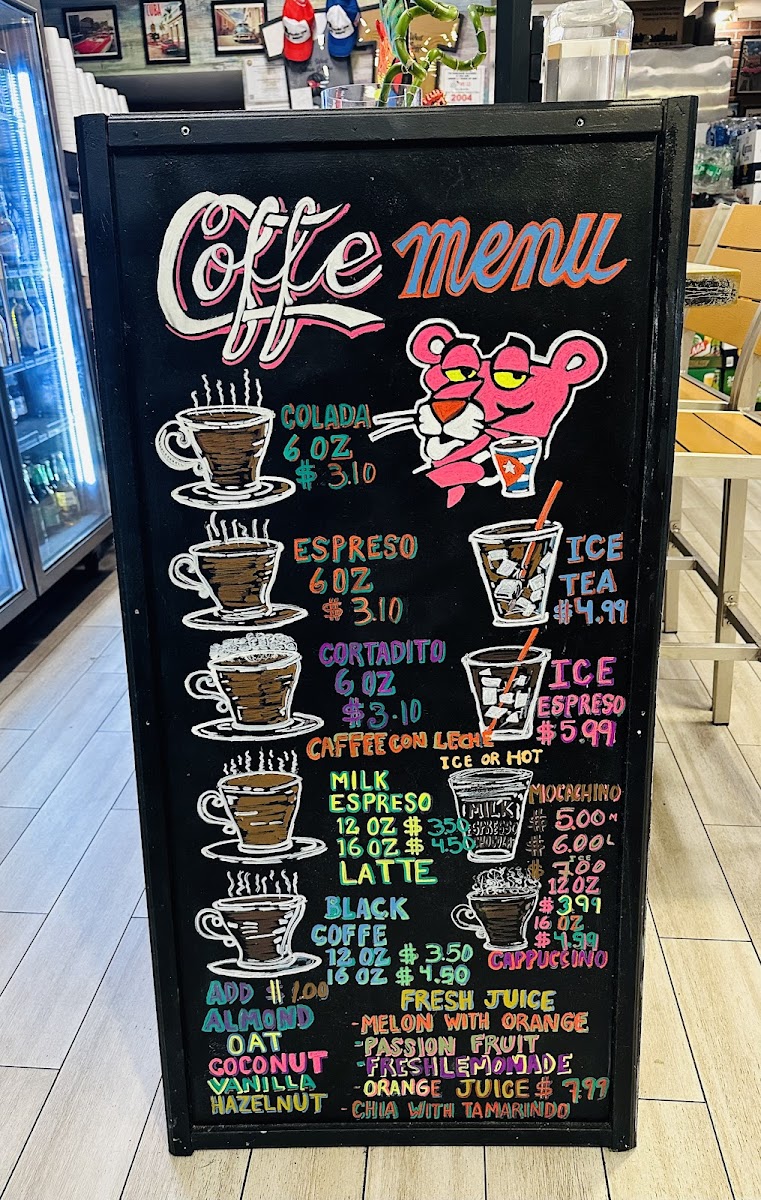 CUBA
2004
Coffe menu
COLADA
6 OZ
$ 3.10
ESPRESO
6 OZ
$ 3.10
ICE
TEA
$4.99
CORTADITO
6 OZ
$3.10
ICE
ESPRESO
$5.99
CAFFEE CON LECHE
ICE OR HOT
MILK
ESPRESO
12 OZ $ 3.50
16 OZ $ 4.50
LATTE
MILK
ESPRESSO
MOCACHINO
$ 5.00 M
$ 6.00 L
ICE
$ 7.00
BLACK
COFFE
12 OZ $ 3.50
16 OZ $ 4.50
12 OZ
$3.99
16 OZ
$4.99
CAPPUCCINO
ADD $1.00
ALMOND
OAT
COCONUT
VANILLA
HAZELNUT
FRESH JUICE
-MELON WITH ORANGE
-PASSION FRUIT
-FRESH LEMOMADE
-ORANGE JUICE $ 7.99
-CHIA WITH TAMARINDO